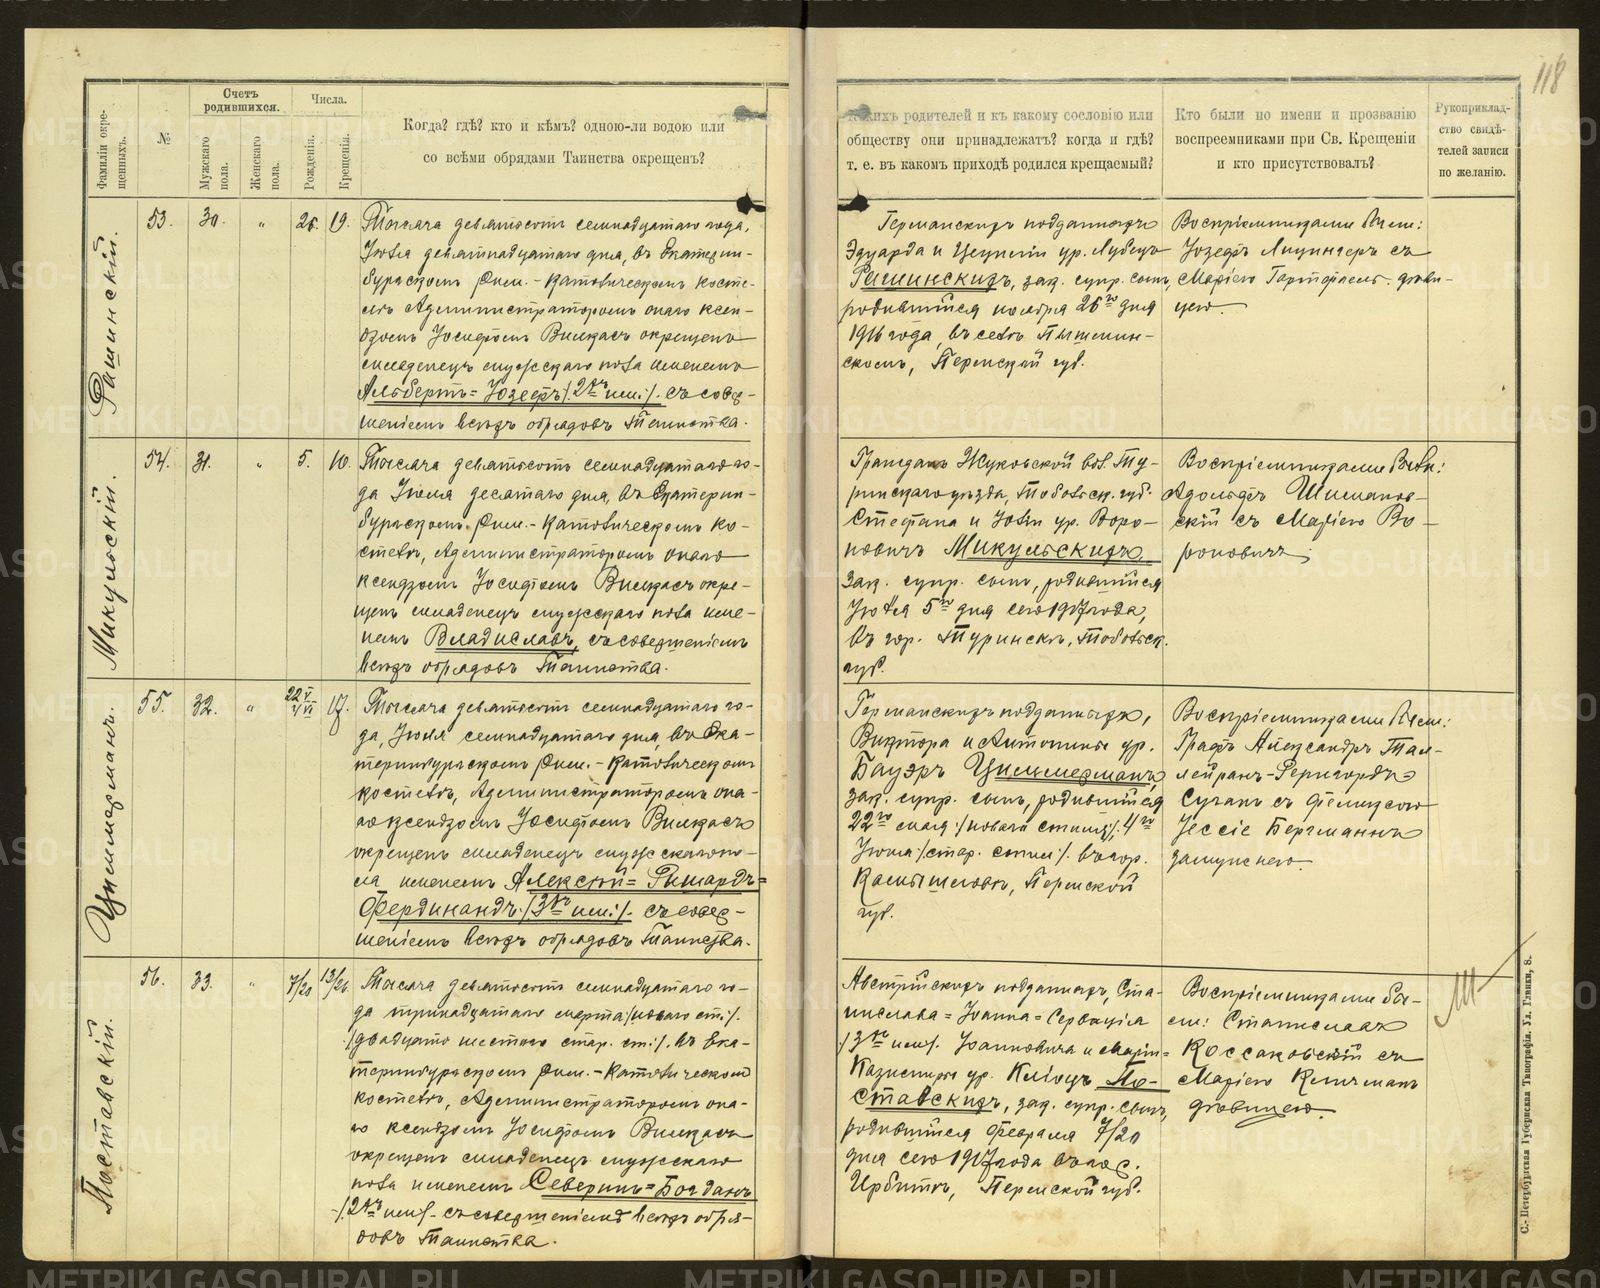 118
Фамиліи окре-
щенныхъ.
№
Счетъ
родившихся.
Мужскаго
пола.
Женскаго
пола.
Числа.
Рожденія.
Крещенія.
Когда? гдѣ? кто и кѣмъ? одною-ли водою или
со всѣми обрядами Таинства окрещенъ?
какихъ родителей и къ какому сословію или
обществу они принадлежатъ? когда и гдѣ?
т. е. въ какомъ приходѣ родился крещаемый?
Кто были по имени и прозванію
воспреемниками при Св. Крещеніи
и кто присутствовалъ?
Рукоприклад-
ство свидѣ-
телей записи
по желанію.
Рашинскій.
53. 30. „ 26. 19.
Тысяча девятьсотъ семнадцатаго года,
Іюля девятнадцатаго дня, въ Екатерин-
бургскомъ Рим.-Католическомъ косте-
лѣ Администраторомъ онаго ксен-
дзомъ Іосифомъ Вилкасъ окрещенъ
младенецъ мужскаго пола именемъ
Альбертъ=Іозефъ /2хъ им:/. съ совер-
шеніемъ всѣхъ обрядовъ Таинства.
Германскихъ подданныхъ
Эдуарда и Цециліи ур.
Рашинскихъ, зак. супр. сынъ,
родившійся ноября 26го дня
1916 года, въ селѣ Пышмин-
скомъ, Пермской губ.
Воспріемниками были:
Іозефъ съ
Маріею дѣви-
цею.
Микульскій.
54. 31. „ 5. 10.
Тысяча девятьсотъ семнадцатаго го-
да Іюля десятаго дня, въ Екатерин-
бургскомъ Рим.-Католическомъ ко-
стелѣ, Администраторомъ онаго
ксендзомъ Іосифомъ Вилкасъ окре-
щенъ младенецъ мужскаго пола име-
немъ Владиславъ, съ совершеніемъ
всѣхъ обрядовъ Таинства.
Гражданъ Жуковской вол. Ту-
ринскаго уѣзда, Тобольск. губ.
Стефана и ур. Воро-
новичъ Микульскихъ
зак. супр. сынъ, родившійся
Іюля 5го дня сего 1917 года,
въ гор. Туринскѣ, Тобольск.
губ.
Воспріемниками были:
Адольфъ Шиманов-
скій съ Маріею Во-
роновичъ
Циммерманъ.
55. 32. „ 22/V 4/VI 17.
Тысяча девятьсотъ семнадцатаго го-
да, Іюля семнадцатаго дня, въ Ека-
теринбургскомъ Рим.-Католическомъ
костелѣ, Администраторомъ она-
го ксендзомъ Іосифомъ Вилкасъ
окрещенъ младенецъ мужскаго по-
ла именемъ Алексѣй=Ришардъ=
Фердинандъ /3хъ им:/. съ совер-
шеніемъ всѣхъ обрядовъ Таинства.
Германскихъ подданныхъ,
Виктора и Антонины ур.
Бауэръ Циммерманъ,
зак. супр. сынъ, родившійся
22го мая /новаго стиля/, 4го
/стар. стил/. въ гор.
Камышловѣ, Пермской
губ.
Воспріемниками были:
Графъ Александръ Тал-
лейранъ-Перигордъ
Саганъ съ Фелицією
Іессіе Бергманнъ
замужнею
Поставскій.
56. 33. „ 7/20 13/26.
Тысяча девятьсотъ семнадцатаго го-
да тринадцатаго марта /новаго ст:/.
/двадцать шестого стар. ст:/. въ Ека-
теринбургскомъ Рим.-Католическомъ
костелѣ, Администраторомъ она-
го ксендзомъ Іосифомъ Вилкасъ
окрещенъ младенецъ мужскаго
пола именемъ Северинъ=Богданъ
/2хъ им/. съ совершеніемъ всѣхъ обря-
довъ Таинства.
Австрійскихъ подданныхъ, Ста-
нислава=Іоанна=Серваціа
/3хъ им/. Іоанновича и Маріи=
Казимиры ур. По-
ставскихъ, зак. супр. сынъ,
родившійся Февраля 7/20
дня сего 1917 года въ гор.
Ирбитѣ, Пермской губ.
Воспріемниками бы-
ли: Станиславъ
Коссаковскій съ
Маріею
дѣвицею.
С.-Петербургская Губернская Типографія. Ул. Глинки, 8.
METRIKI.GASO-URAL.RU